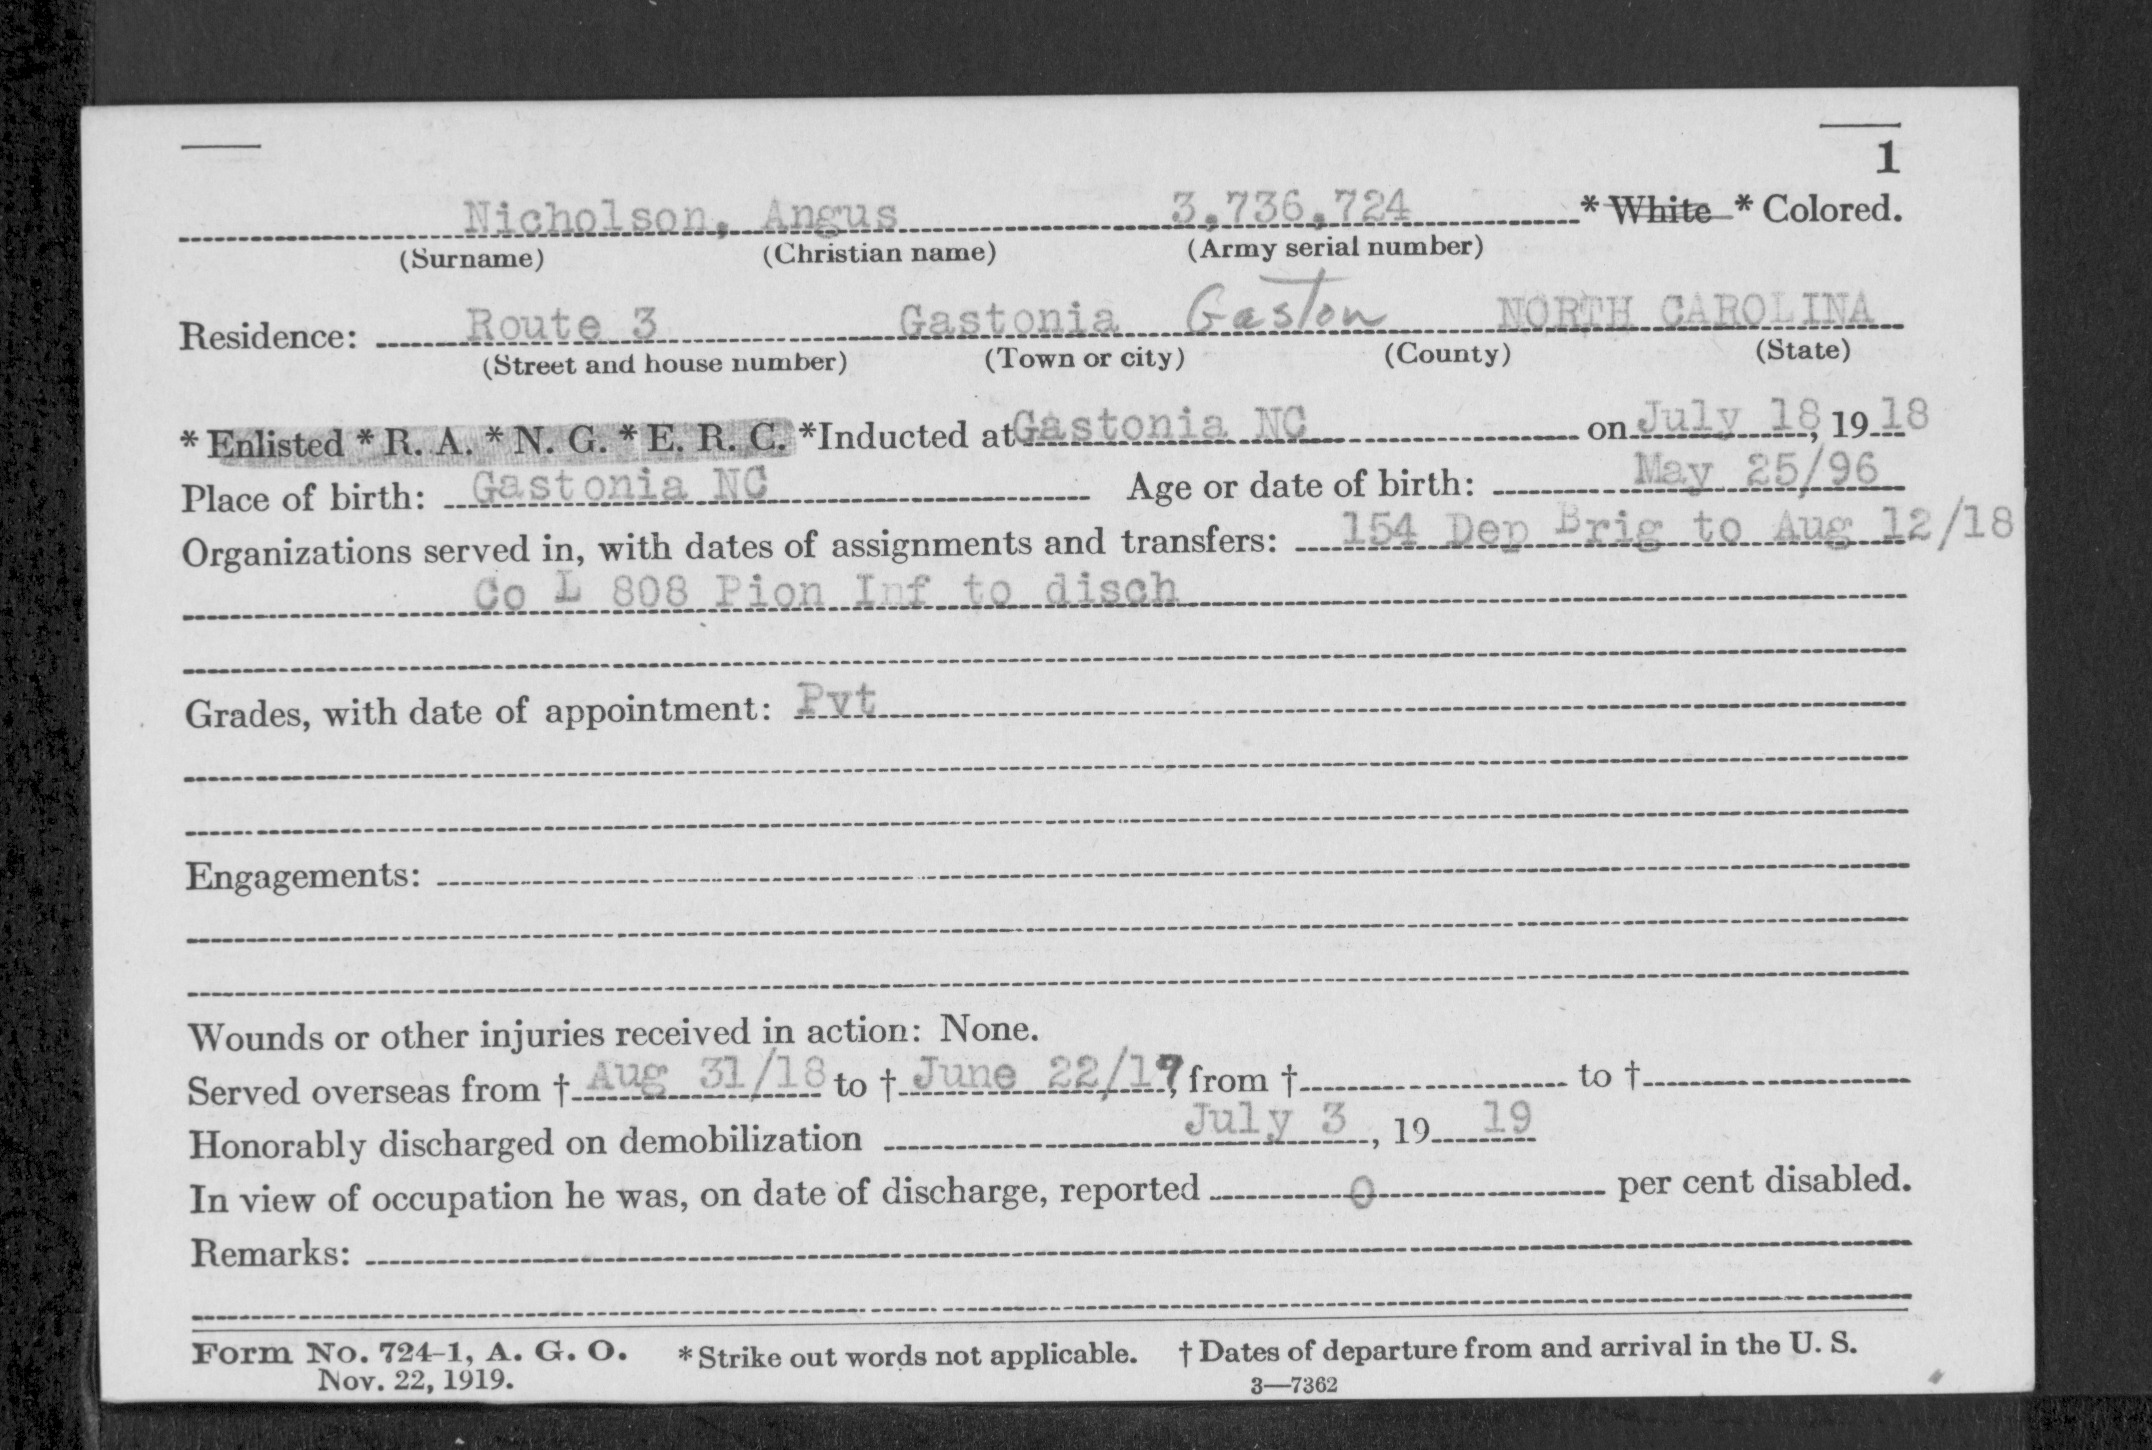 1
Nicholson, Angus 3,736,724 * White * Colored.
(Surname) (Christian name) (Army serial number)
Residence: Route 3 Gastonia Gaston NORTH CAROLINA
(Street and house number) (Town or city) (County) (State)
* Enlisted * R. A. * N. G. * E. R. C. *Inducted at Gastonia NC on July 18, 19 18
Place of birth: Gastonia NC Age or date of birth: May 25/96
Organizations served in, with dates of assignments and transfers: 154 Dep Brig to Aug 12/18
Co L 808 Pion Inf to disch
Grades, with date of appointment: Pvt
Engagements:
Wounds or other injuries received in action: None.
Served overseas from † Aug 31/18 to † June 22/19, from † to †
Honorably discharged on demobilization July 3, 19 19
In view of occupation he was, on date of discharge, reported 0 per cent disabled.
Remarks:
Form No. 724-1, A. G. O. * Strike out words not applicable. † Dates of departure from and arrival in the U. S.
Nov. 22, 1919. 3—7362